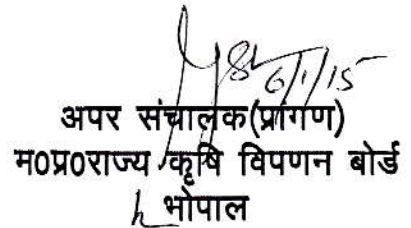 6/1/15
अपर संचालक(प्रांगण)
म0प्र0राज्य कृषि विपणन बोर्ड
भोपाल